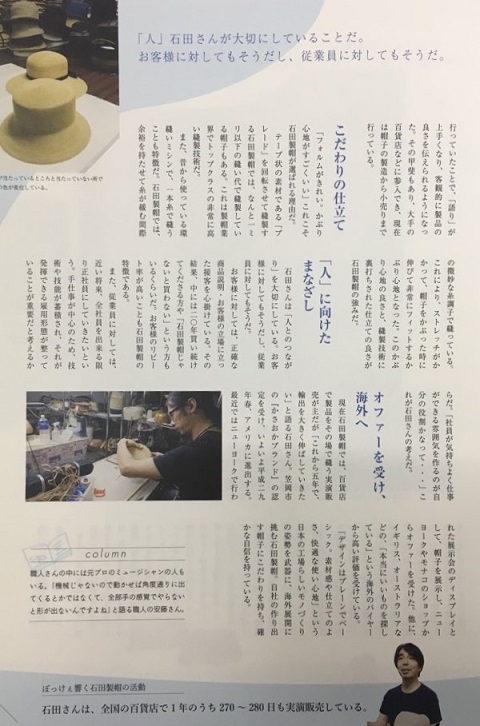 「人」石田さんが大切にしていることだ。
お客様に対してもそうだし、従業員に対してもそうだ。
行っていたことで、「語り」が
上手くなり、客観的に製品の
良さを伝えられるようになっ
た。その甲斐もあり、大手の
百貨店などに参入でき、現在
は帽子の製造から小売りまで
行っている。
こだわりの仕立て
「フォルムがきれい。かぶり
心地がすごくいい」これこそ
石田製帽が選ばれる理由だ。
テープ状の素材である「ブ
レード」を回転させて縫製す
る石田製帽では、なんと一ミ
リ以下の縫い代で縫製してい
る帽子もある。これは帽業
界でトップクラスの非常に高
い縫製技術だ。
また、昔から使っている環
縫いミシンで、一本糸で縫う
ことも特徴だ。石田製帽では、
余裕を持たせて糸が緩む間際
の微妙な糸調子で縫っている。
これにより、ストレッチがか
かって、帽子をかぶった時に
伸びて非常にフィットするか
ぶり心地となった。このかぶ
り心地の良さと、縫製技術に
裏打ちされた仕立ての良さが
石田製帽の強みだ。
「人」に向けた
まなざし
石田さんは「人とのつなが
り」を大切にしている。お客
様に対してもそうだし、従業
員に対してもそうだ。
お客様に対しては、正確な
商品説明・お客様の立場に立っ
た接客を心掛けている。その
結果、中には二〇年買い続け
てくださる方や「石田製帽じゃ
ないと買わない」という方も
いるくらいだ。お客様のリピー
ト率が高いことも石田製帽の
特徴である。
また、従業員に対しては、
近い将来、全社員を出来る限
り正社員にしていきたいとい
う。手仕事が中心のため、技
術や技能が蓄積され、それが
発揮できる雇用形態が整って
いることが重要だと考えるか
らだ。「社員が気持ちよく仕事
ができる雰囲気を作るのが自
分の役割かなって・・・」こ
れが石田さんの考えだ。
オファーを受け、
海外へ
現在石田製帽では、百貨店
で製品をその場で縫う実演販
売が主だが「これから五年で、
輸出を大きく伸ばしていきた
い」と語る石田さん。笠岡市
の「かさおかブランド」の認
定を受け、いよいよ平成二九
年春、アメリカに進出する。
最近ではニューヨークで行わ
れた展示会のディスプレイと
して、帽子を展示し、ニュー
ヨークやモナコのショップか
らオファーを受けた。他に、
イギリス、オーストラリアな
どの、「本当にいいものを探し
ている」という海外のバイヤー
から高い評価を受けている。
「デザインはプレーンでベー
シック。素材感や仕立てのよ
さ、快適な使い心地」という
日本の工場らしいモノづくり
の姿勢を武器に、海外展開に
挑む石田製帽。自社の作り出
す帽子にこだわりを持ち、確
かな自信を持っている。
column
職人さんの中には元プロのミュージシャンの人も
いる。「機械じゃないので動かせば角度通りに出
てくるとかではなくて、全部手の感覚でやらない
と形が出ないんですよね」と語る職人の安藤さん。
ぼっけぇ響く石田製帽の活動
石田さんは、全国の百貨店で1年のうち270～280日も実演販売している。